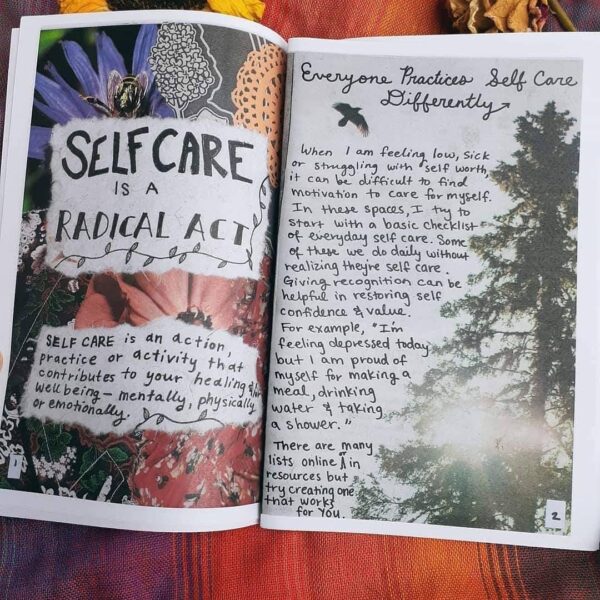 SELF CARE
IS A
RADICAL ACT
SELF CARE is an action,
practice or activity that
contributes to your healing &/or
well being - mentally, physically
or emotionally.
1
Everyone Practices Self Care
Differently
When I am feeling low, sick
or struggling with self worth,
it can be difficult to find
motivation to care for myself.
In these spaces, I try to
start with a basic checklist
of everyday self care. Some
of these we do daily without
realizing they're self care.
Giving recognition can be
helpful in restoring self
confidence & value.
For example, "I'm
feeling depressed today
but I am proud of
myself for making a
meal, drinking
water & taking
a shower."
There are many
lists online & in
resources but
try creating one
that works
for You.
2